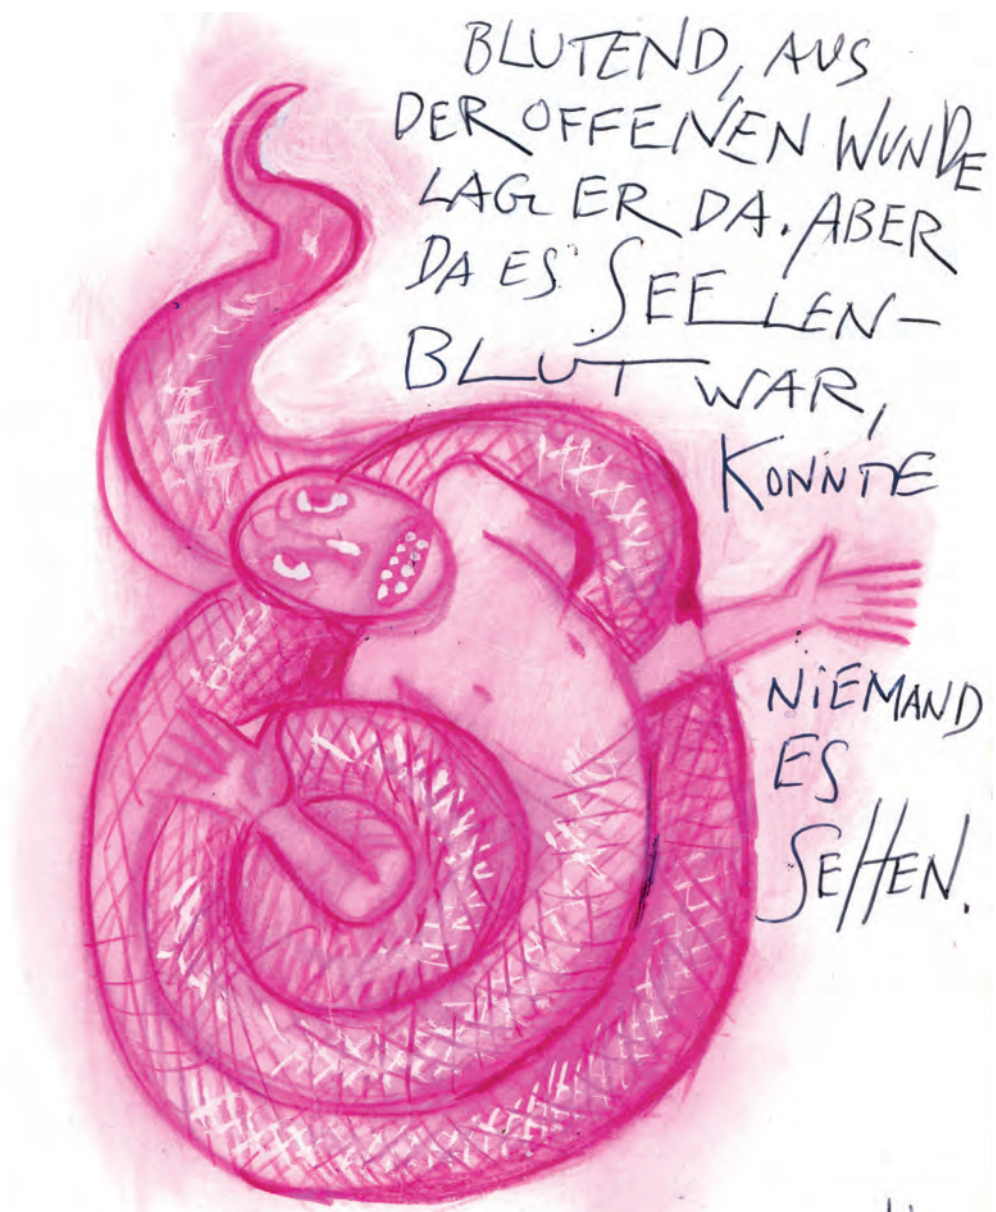 BLUTEND, AUS
DER OFFENEN WUNDE
LAG ER DA. ABER
DA ES SEELEN-
BLUT WAR,
KONNTE
NIEMAND
ES
SEHEN.